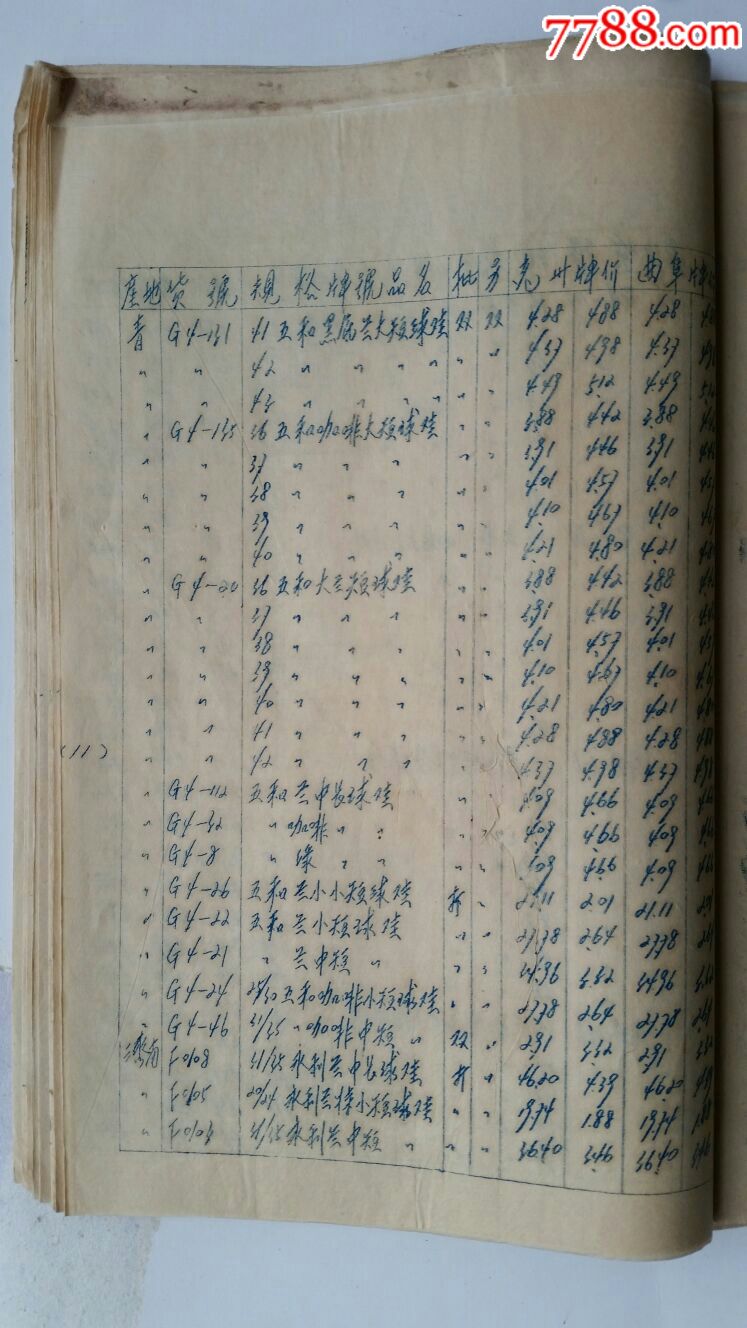 7788.com
產地 貨號 規格牌號品名 批 另 兗州牌价 曲阜牌
青 G4-131 41 五和黑属兰大短球鞋 双 双 4.28 4.88 4.28
〃 〃 42 〃 〃 〃 〃 〃 〃 4.37 4.98 4.37
〃 〃 43 〃 〃 〃 〃 〃 〃 4.49 5.12 4.49 5.12
〃 G4-135 36 五和咖啡大短球鞋 〃 〃 3.88 4.42 3.88
〃 〃 37 〃 〃 〃 〃 〃 3.91 4.46 3.91
〃 〃 38 〃 〃 〃 〃 〃 4.01 4.57 4.01
〃 〃 39 〃 〃 〃 〃 〃 4.10 4.67 4.10
〃 〃 40 〃 〃 〃 〃 〃 4.21 4.80 4.21
〃 G4-20 36 五和大兰短球鞋 〃 〃 3.88 4.42 3.88
〃 〃 37 〃 〃 〃 〃 〃 3.91 4.46 3.91
〃 〃 38 〃 〃 〃 〃 〃 4.01 4.57 4.01
〃 〃 39 〃 〃 〃 〃 〃 4.10 4.67 4.10
〃 〃 40 〃 〃 〃 〃 〃 4.21 4.80 4.21
〃 〃 41 〃 〃 〃 〃 〃 4.28 4.88 4.28
(11)
〃 〃 42 〃 〃 〃 〃 〃 4.37 4.98 4.37
〃 G4-112 五和兰中长球鞋 〃 〃 4.09 4.66 4.09
〃 G4-32 〃 咖啡 〃 〃 〃 〃 4.09 4.66 4.09
〃 G4-8 〃 绿 〃 〃 〃 〃 4.09 4.66 4.09
〃 G4-26 五和兰小小短球鞋 打 〃 21.11 2.01 21.11
〃 G4-22 五和兰小短球鞋 〃 〃 27.78 2.64 27.78
〃 G4-21 〃 兰中短 〃 〃 〃 34.96 3.32 34.96
〃 G4-24 28/30 五和咖啡小短球鞋 〃 〃 27.78 2.64 27.78
〃 G4-46 31/35 〃 咖啡中短 〃 双 〃 2.91 3.32 2.91
济南 F0108 31/35 永利兰中长球鞋 打 〃 46.20 4.39 46.20
〃 F0105 20/24 永利兰棕小短球鞋 〃 〃 19.74 1.88 19.74 1.88
〃 31/35 永利兰中短 〃 〃 〃 36.40 3.46 36.40